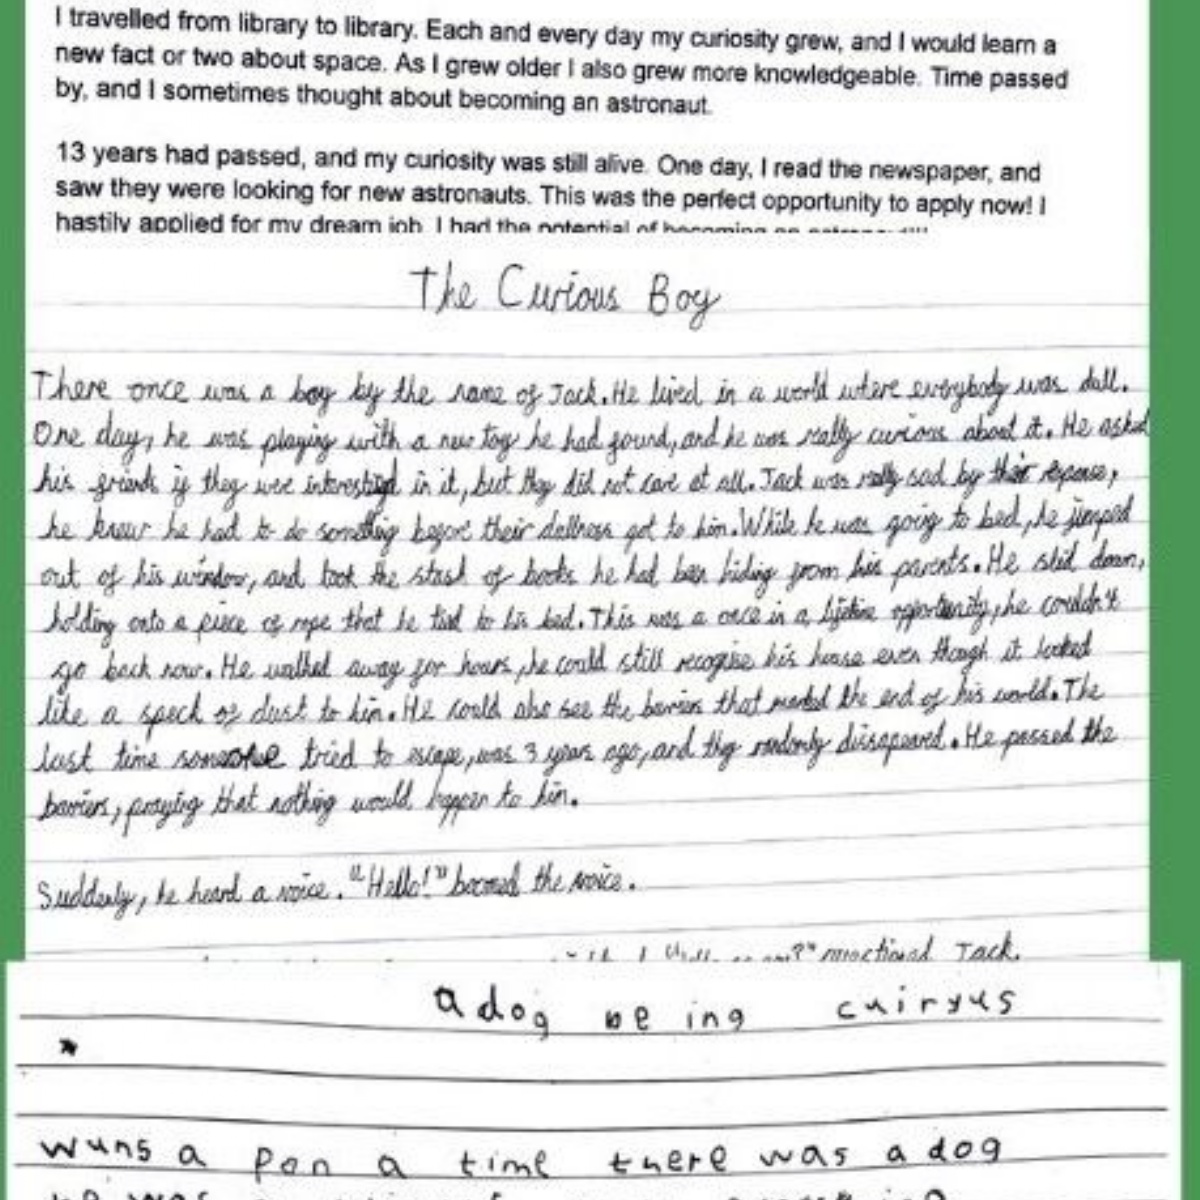 I travelled from library to library. Each and every day my curiosity grew, and I would learn a
new fact or two about space. As I grew older I also grew more knowledgeable. Time passed
by, and I sometimes thought about becoming an astronaut.
13 years had passed, and my curiosity was still alive. One day, I read the newspaper, and
saw they were looking for new astronauts. This was the perfect opportunity to apply now! I
hastily applied for my dream job. I had the potential of becoming an
The Curious Boy
There once was a boy by the name of Jack. He lived in a world where everybody was dull.
One day, he was playing with a new toy he had found, and he was really curious about it. He asked
his friends if they were interested in it, but they did not care at all. Jack was really sad by their reponse,
he knew he had to do something before their dullness got to him. While he was going to bed, he jumped
out of his window, and took the stash of books he had been hiding from his parents. He slid down,
holding onto a piece of rope that he tied to his bed. This was a once in a lifetime opportunity, he couldn't
go back now. He walked away for hours, he could still recognise his house even though it looked
like a speck of dust to him. He could also see the barriers that marked the end of his world. The
last time someone tried to escape, was 3 years ago, and they randomly dissapeared. He passed the
barriers, praying that nothing would happen to him.
Suddenly, he heard a voice. "Hello!" boomed the voice.
Jack.
a dog be ing cuiryus
wuns a pon a time there was a dog